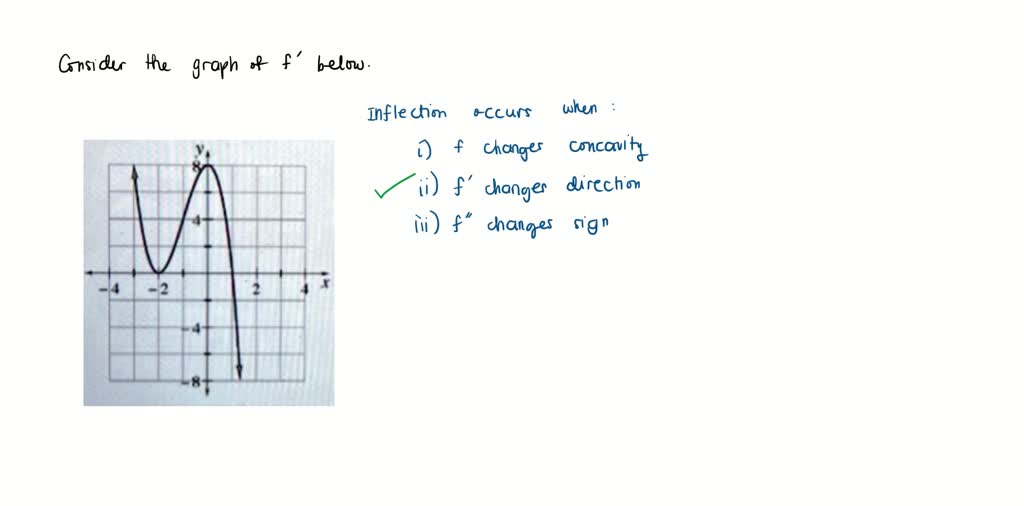 Consider the graph of f' below.
Inflection occurs when :
i) f changes concavity
ii) f' changes direction
iii) f" changes sign
y
8
4
-4 -2 2 4 x
-4
-8